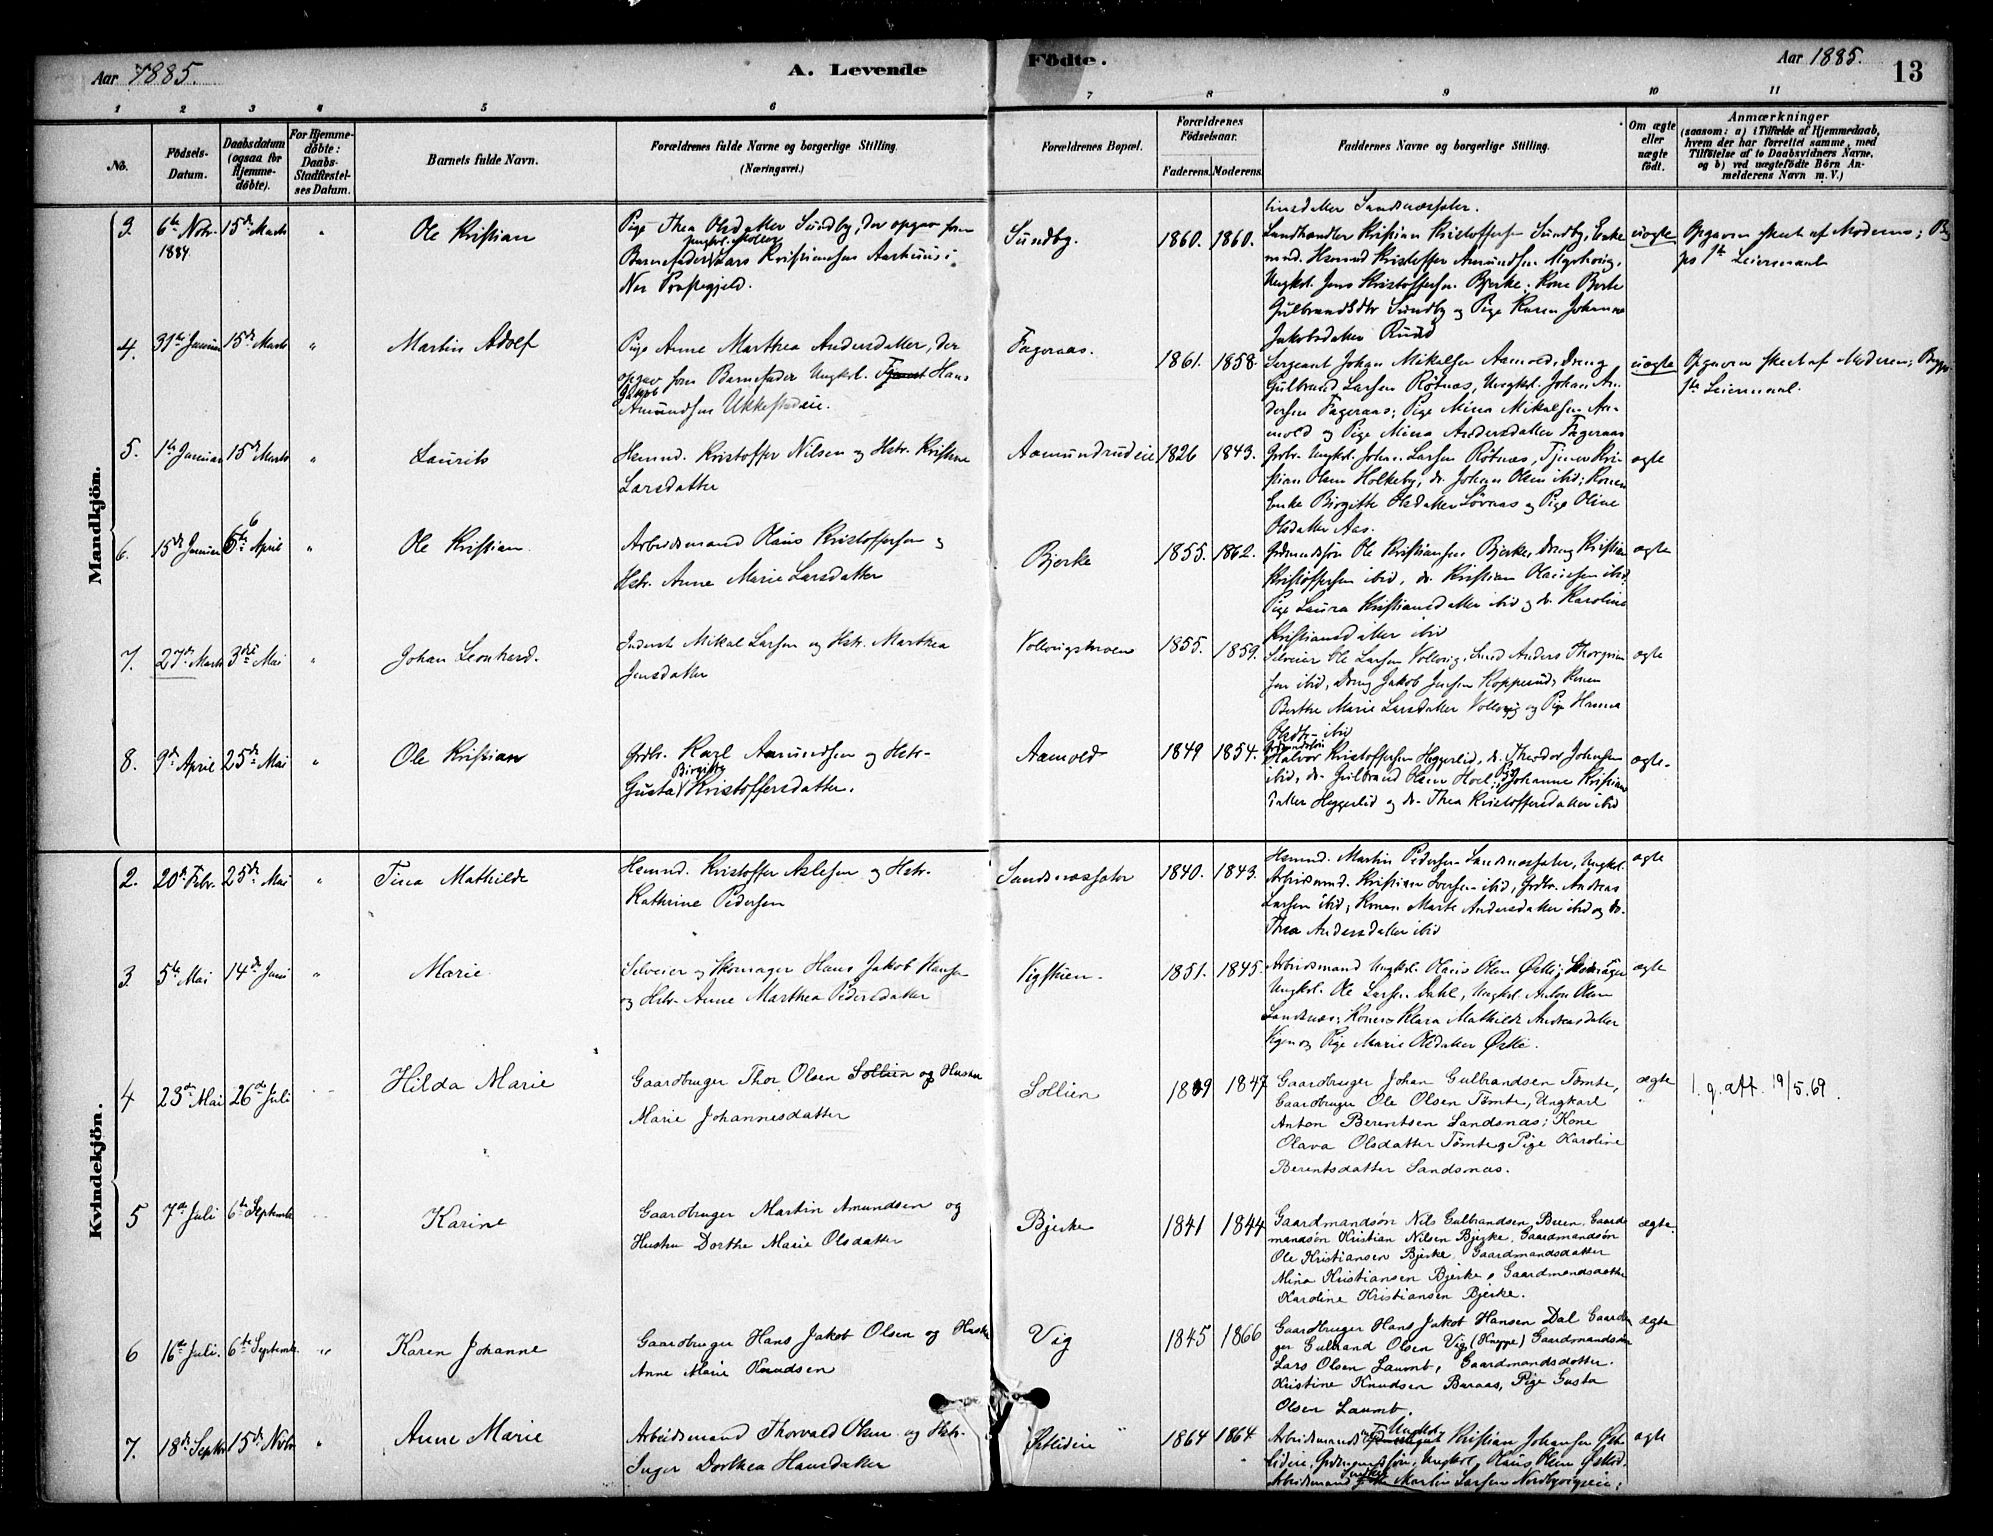 Aar 1885.
A. Levende
Födte.
Aar 1885.
13
1 2 3 4 5 6 7 8 9 10 11
No.
Födsels-Datum.
Daabsdatum (ogsaa for Hjemme-döbte).
For Hjemme-döbte: Daabs-Stadfæstelses Datum.
Barnets fulde Navn.
Forældrenes fulde Navne og borgerlige Stilling. (Næringsvei.)
Forældrenes Bopæl.
Forældrenes Födselsaar.
Faderens. Moderens.
Faddernes Navne og borgerlige Stilling.
Om ægte eller uægte födt.
Anmærkninger
(saasom: a) i Tilfælde af Hjemmedaab,
hvem der har forrettet samme, med
Tilföielse af to Daabsvidners Navne,
og b) ved uægtefödte Börn An-
melderens Navn m. V.)
Mandkjön.
linsdatter Sandsnæssæter.
3. 6te Novr. 1884 15de Marts " Ole Kristian
Pige Thea Olsdatter Sundby, der opgav som
Barnefader Lars Kristiansen Aarhuus i
Nes Præstegjeld.
Sundby. 1860. 1860.
Landhandler Kristian Kristoffersen Sundby, Enke
mnd. Hsmnd Kristoffer Amundsen
Ungkrl. Jens Kristoffersen Bjerke, Kone Berte
Gulbrandsdtr Sundby og Pige Karen Johanne
Jakobsdatter Ruud
uægte
Opgaven skeet af Moderen; Beg-
ges 1te Leiermaal
4. 31te Januar 15de Marts " Martin Adolf
Pige Anne Marthea Andersdatter, der
opgav som Barnefader Ungkrl. Hans
Jakob
Amundsen Ukkestadeie.
Fageraas. 1861. 1858.
Sergeant Johan Mikalsen Aamold, Dreng
Gulbrand Larsen Rötnæs, Ungkrl. Johan An-
dersen Fageraas; Pige Mina Mikalsen Aa-
mold og Pige Mina Andersdatter Fageraas
uægte
Opgaven skeet af Moderen; Begges
1te Leiermaal.
5. 1te Januar 15de Marts " Laurits
Hsmnd. Kristoffer Nilsen og Hstr. Kristine
Larsdatter
Aamundrudeie 1826 1843.
Grdbr. Ungkrl. Johan Larsen Rötnæs, Tjener Kri-
stian Olsen Holkeby, do. Johan Olsen ibid; Konen
Enke Birgitte Olsdatter Lövaas og Pige Oline
Olsdatter Aas.
ægte
6. 15de Januar 6te April " Ole Kristian
Arbeidsmand Olaus Kristoffersen og
Hstr. Anne Marie Larsdatter
Bjerke 1855. 1862.
Grdmandssön Ole Kristiansen Bjerke, Dreng Kristian
Kristoffersen ibid, do. Kristian Olausen ibid,
Pige Laura Kristiansdatter ibid og do. Karoline
Kristiansdatter ibid
ægte
7. 27de Marts 3die Mai " Johan Leonhard.
Inderst Mikal Larsen og Hstr. Marthea
Jensdatter
1855. 1859.
Selveier Ole Larsen Vollevig, Anders Thorgrim
sen ibid, Dreng Jakob Jensen Kopperud, Konen
Berthe Marie Larsdatter Vollevig og Pige Hanna
Olsdtr. ibid
ægte
8. 9de April 25de Mai " Ole Kristian
Grdbr. Karl Aamundsen og Hstr.
Birgitte
Gusta Kristoffersdatter.
Aamold 1849 1854.
Halvor Kristoffersen Heggerlid, do. Theodor Johansen
ibid, do. Gulbrand Olsen Hoel; Pige Johanne Kristians
datter Heggerlid og do. Thea Kristoffersdatter ibid
ægte.
Kvindekjön.
2. 20de Febr. 25de Mai " Tina Mathilde
Hsmnd. Kristoffer Aslesen og Hstr.
Kathrine Pedersen
Sandsnæssæter 1840. 1843.
Hsmnd. Martin Pedersen Sandsnæssæter, Ungkrl.
Arbeidsmnd. Kristian Iversen ibid, Grdbr. Andreas
Larsen ibid; Konen Marte Andersdatter ibid og do.
Thea Andersdatter ibid
ægte
3. 5te Mai 14de Juni " Marie
Selveier og Skomager Hans Jakob Hansen
og Hstr. Anne Marthea Pedersdatter
Vigstien 1851. 1845.
Arbeidsmand Ungkrl. Olaus Olsen Östli;
Ungkrl. Ole Larsen Dahl, Ungkrl. Anton Olsen
Sandsnæs; Konen Klara Mathilde Andreasdatter
Vigen og Pige Marie Olsdatter Östli.
ægte
4 23de Mai 26de Juli Hilda Marie
Gaardbruger Thor Olsen Sollien og Hustru
Marie Johannesdatter
Sollien 1849 1847
Gaardbruger Johan Gulbrandsen Tømte,
Gaardbruger Ole Olsen Tømte, Ungkarl
Anton Berentsen Sandsnæs; Kone
Olava Olsdatter Tømte, Pige Karoline
Berentsdatter Sandsnæs.
ægte
1. g. att 19/5.69.
5 7de Juli 6te Septembr Karine
Gaardbruger Martin Amundsen og
Hustru Dorthe Marie Olsdatter
Bjerke 1841 1844
Gaardmandsøn Nils Gulbrandsen Buen, Gaard-
mandsøn Kristian Nilsen Bjerke, Gaardmandsøn
Ole Kristiansen Bjerke, Gaardmandsdatter
Mina Kristiansen Bjerke, Gaardmandsdatter
Karoline Kristiansen Bjerke.
ægte
6 16de Juli. 6te Septembr " Karen Johanne
Gaardbruger Hans Jakob Olsen og Hustru
Anne Marie Knudsen
Vig 1845 1866
Gaardbruger Hans Jakob Hansen Dal Gaardbru
ger Gulbrand Olsen Vig (Kneppe) Gaardmandsøn
Lars Olsen Laumb, Gaardmandsdatter.
Kristine Knudsen Buraas, Pige Gusta
Olsen Laumb.
ægte
7. 18de Septbr 15de Novbr " Anne Marie
Arbeidsmand Thorvald Olsen og Hstr.
Inger Dorthea Hansdatter
Østlideie 1864 1864.
Arbeidsmand Ungkrl. Kristian Johansen Øst-
lideie, Ungkrl. Olaus Olsen Østlid.
Arbeidsmand Martin Larsen Nordbyvigseie;
ægte